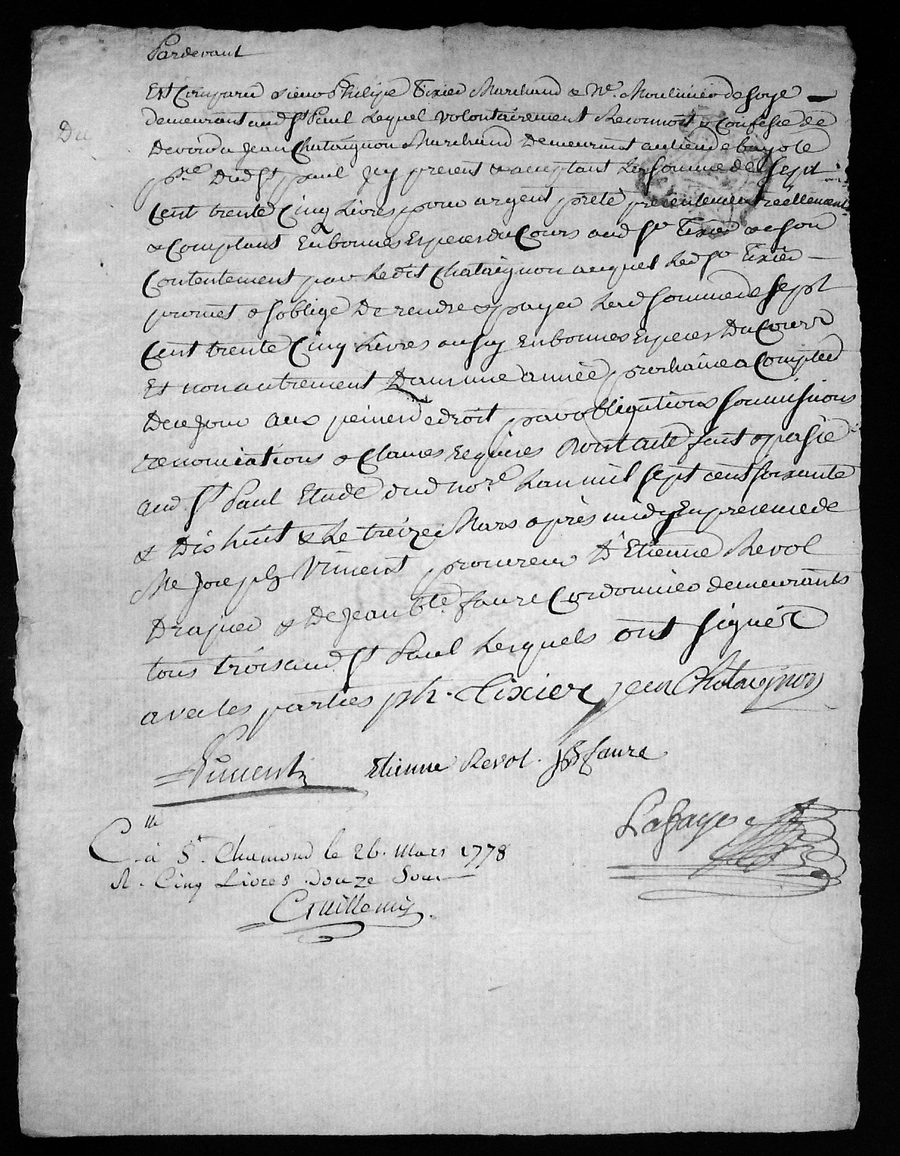 Pardevant
Est Comparu sieur Philipe Tixier Marchand & Me Moulinier de soye
Du
demeurant aud St Paul Lequel volontairement Reconnoit & Confesse
Devoir a Jean Chataignon Marchand Demeurant au lieu de
psse Dud St paul Icy present & acceptant La somme de Sept
Cent trente Cinq Livres pour argent prété présentement réellement
& Comptant En bonnes Especes du Cours aud Sr Tixier & a son
Contentement par Ledit Chataignon auquel Led Sr Tixier
promet & soblige De rendre & payer Lad somme de Sept
Cent trente Cinq Livres aussy En bonnes Especes Du Cours
Et non autrement Dans une année prochaine a Compter
De ce Jour aux peines de droit par obligations soumissions
renonciations & Clauses Requises Dont acte fait & passé
aud St Paul Etude dud nore Lan mil sept cent soixante
& Dis huit & Le treize Mars après midy En presence de
Me Joseph Vincent procureur Sr Etienne Revol
Drapier & De Jean Bte faure Cordonnier demeurants
tous trois aud St Paul Lesquels ont signér
avec les parties ph. Tixier Jean Chataignon
Vincent Etienne Revol. JB faure
Lafaye
C. lle à St. Chamond le 26. Mars 1778
R. Cinq Livres douze Sous
Guillemin